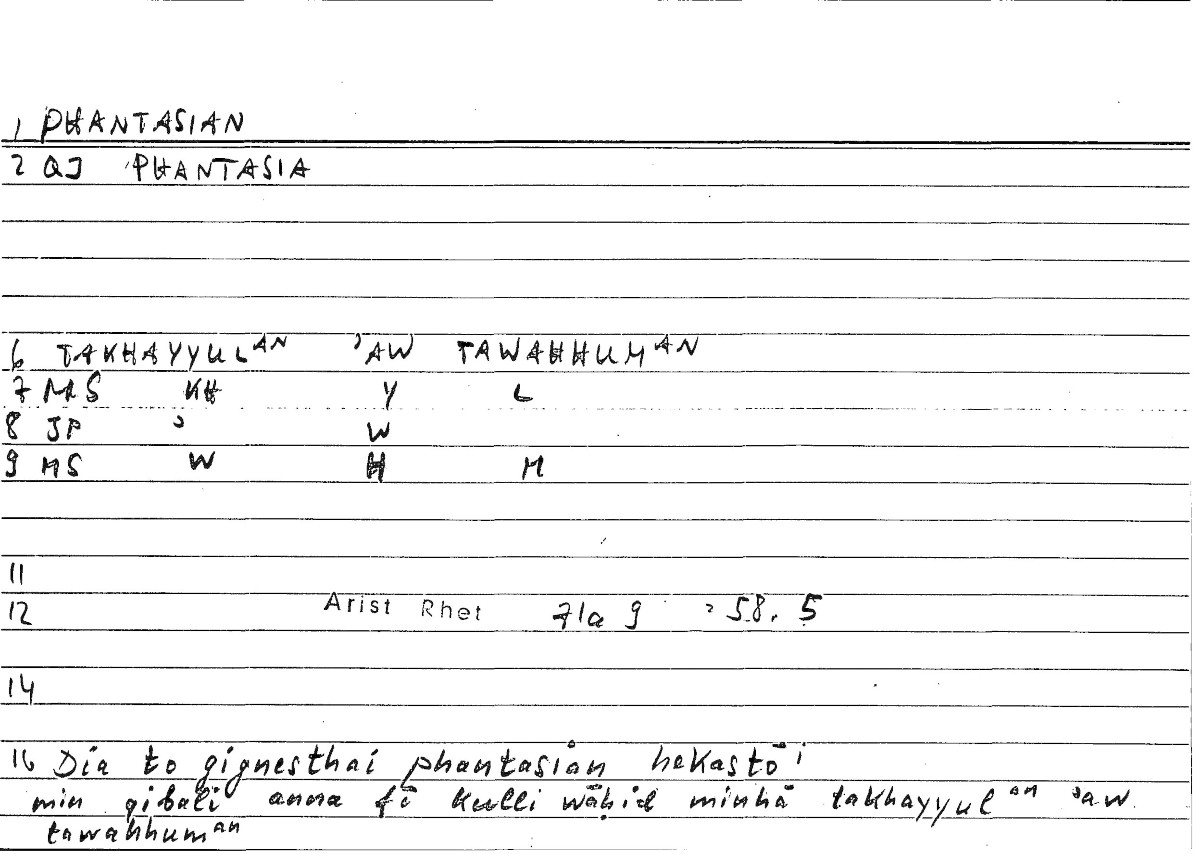 1 PHANTASIAN
2 QJ PHANTASIA
6 TAKHAYYULᴬᴺ ʾAW TAWAHHUMᴬᴺ
7 MS KH Y L
8 JP ʾ W
9 MS W H M
11
12 Arist Rhet 71a 9 : 58. 5
14
16 Dia to gignesthai phantasian hekastōi
min qibali anna fī kulli wāḥid minhā takhayyulᵃⁿ ʾaw
tawahhumᵃⁿ